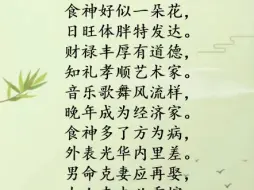 食神好似一朵花，
日旺体胖特发达。
财禄丰厚有道德，
知礼孝顺艺术家。
音乐歌舞风流样，
晚年成为经济家。
食神多了方为病，
外表光华内里差。
男命克妻应再娶，